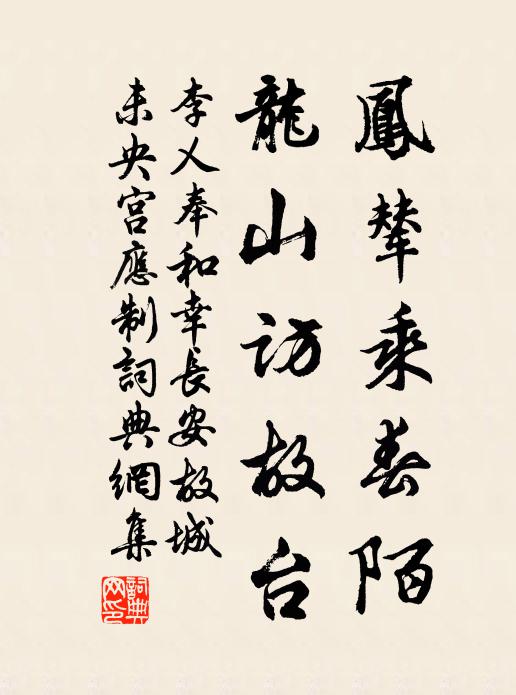 鳳輦乘春陌
龍山訪故台
李乂奉和幸長安故城
未央宮應制詞典網集
詞典
网印